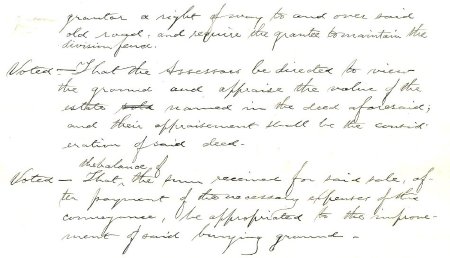 grantor a right of way to and over said
old road. and require the grantee to maintain the
division fence.
Voted — That the Assessors be directed to view
the ground and appraise the value of the
estate sold named in the deed aforesaid;
and their appraisement shall be the consid-
eration of said deed.
the balance of
Voted — That, the sum received for said sale, af-
ter payment of the necessary expenses of the
conveyance, be appropriated to the improve-
ment of said burying ground —